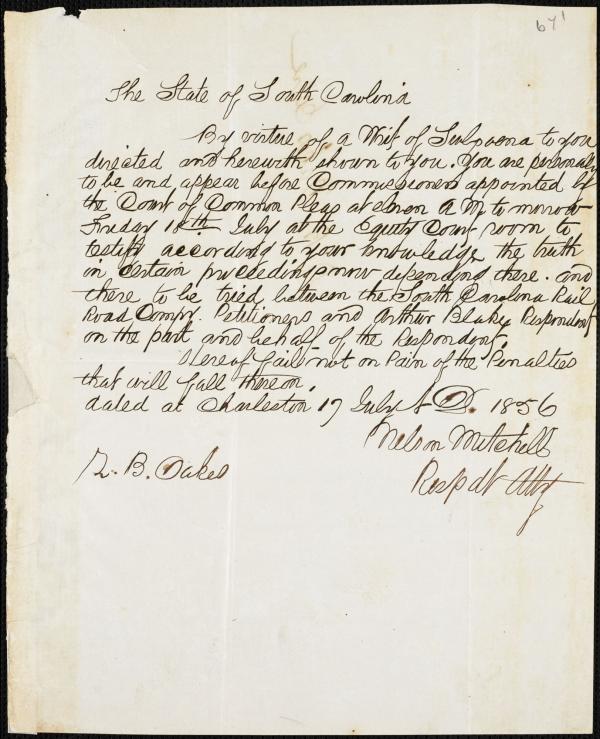 671
The State of South Carolina
By virtue of a Writ of Subpoena to you
directed and herewith shown to you. You are personally
to be and appear before Commissioners appointed by
the Court of Common Pleas at eleven A M to morrow
Friday 18th July at the Equity Court room to
testify according to your knowledge the truth
in certain proceedings now depending there. and
there to be tried between the South Carolina Rail
Road Compy. Petitioners and Arthur Blake Respondent
on the part and behalf of the Respondent.
Hereof fail not on Pain of the Penalties
that will fall thereon.
dated at Charleston 17 July A D. 1856
Nelson Mitchell
Z. B. Oakes
Respdt Atty